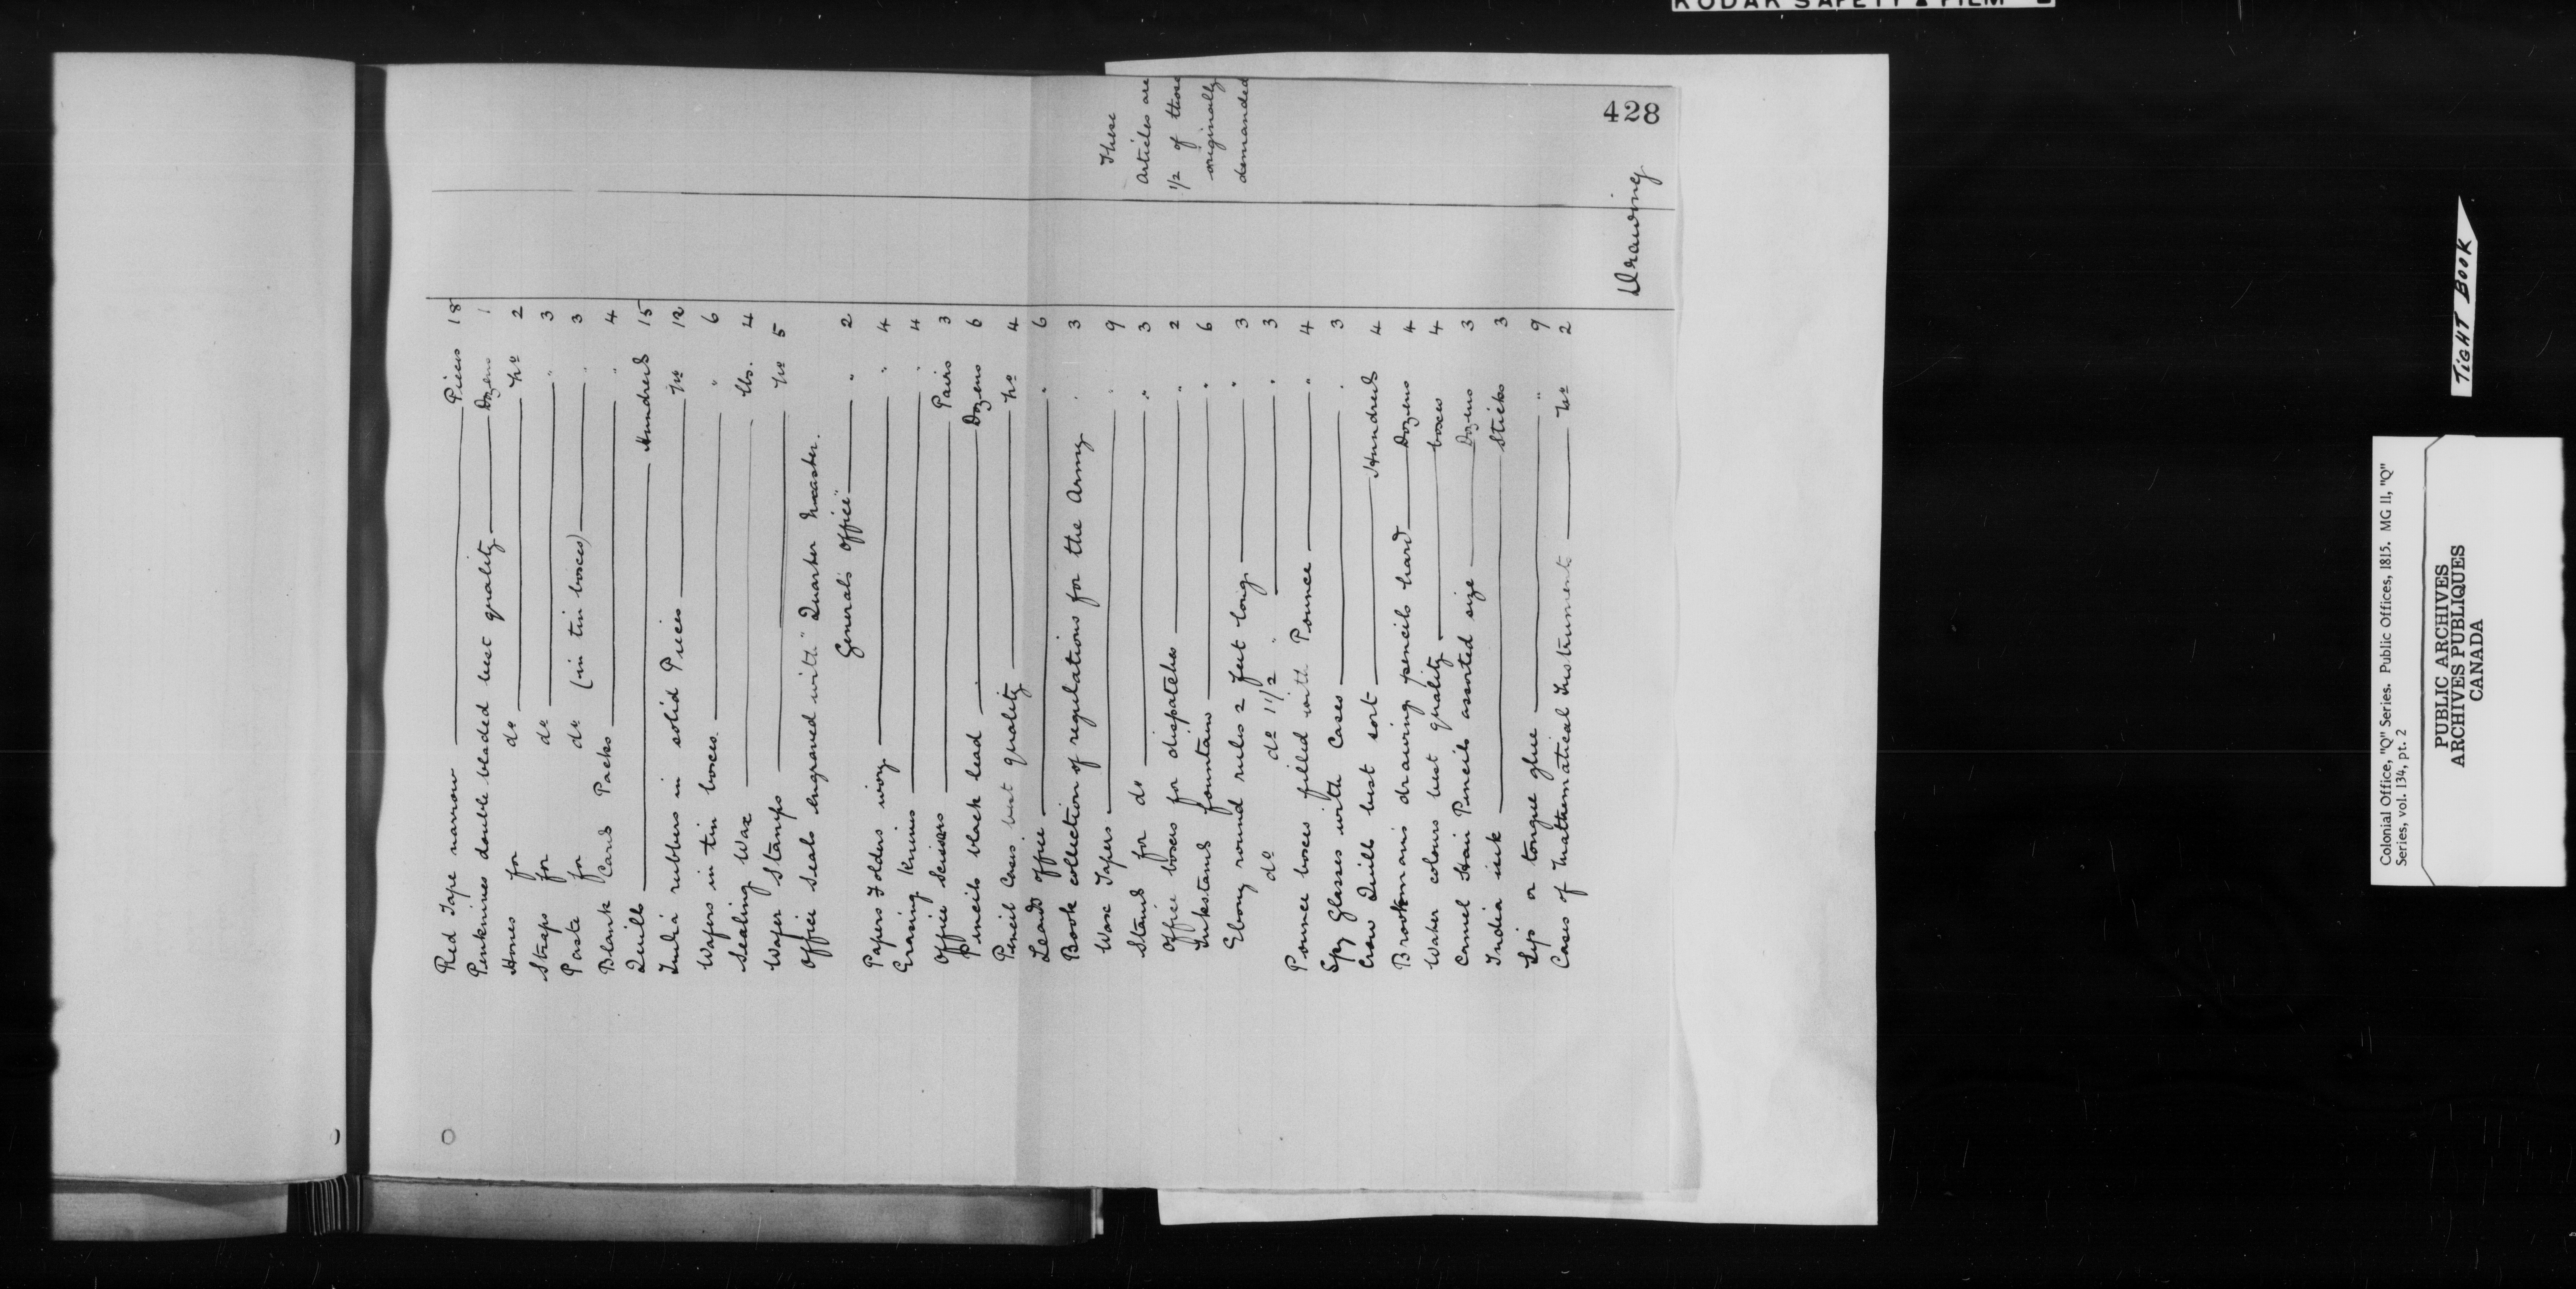 KODAK SAFETY FILM
428
Red Tape narrow Pieces 18
Penknives double bladed best quality Dozens 1
Hones for do No 2
Straps for do " 3
Paste for do (in tin boxes) " 3
Blank Card Packs " 4
Quills Hundred 15
India rubbers in solid Pieces No 12
Wafers in tin boxes " 6
Sealing Wax lbs. 4
Wafer Stamps No 5
Office Seals engraved with "Quarter Master
Generals Office" " 2
Papers Folders ivory " 4
Erasing Knives " 4
Office Scissors Pairs 3
Pencils black lead Dozens 6
Pencil Cases best quality No 4
Leads office " 6
Book collection of regulations for the Army " 3
Wax Tapers " 9
Stand for do " 3
Office boxes for dispatches " 2
Inkstand fountains " 6
Ebony round rules 2 feet long " 3
do do 1 1/2 " " 3
Pounce boxes filled with Pounce " 4
Spy Glasses with Cases " 3
Crow Quills best sort Hundred 4
Brookmans drawing pencils hard Dozens 4
Water colours best quality boxes 4
Camel Hair Pencils assorted size Dozens 3
India ink Sticks 3
Lip or tongue glue " 9
Cases of Mathematical Instruments No 2
These
Articles are
1/2 of those
originally
demanded
Drawing
TIGHT BOOK
Colonial Office, "Q" Series. Public Offices, 1815. MG 11, "Q"
Series, vol. 134, pt. 2
PUBLIC ARCHIVES
ARCHIVES PUBLIQUES
CANADA